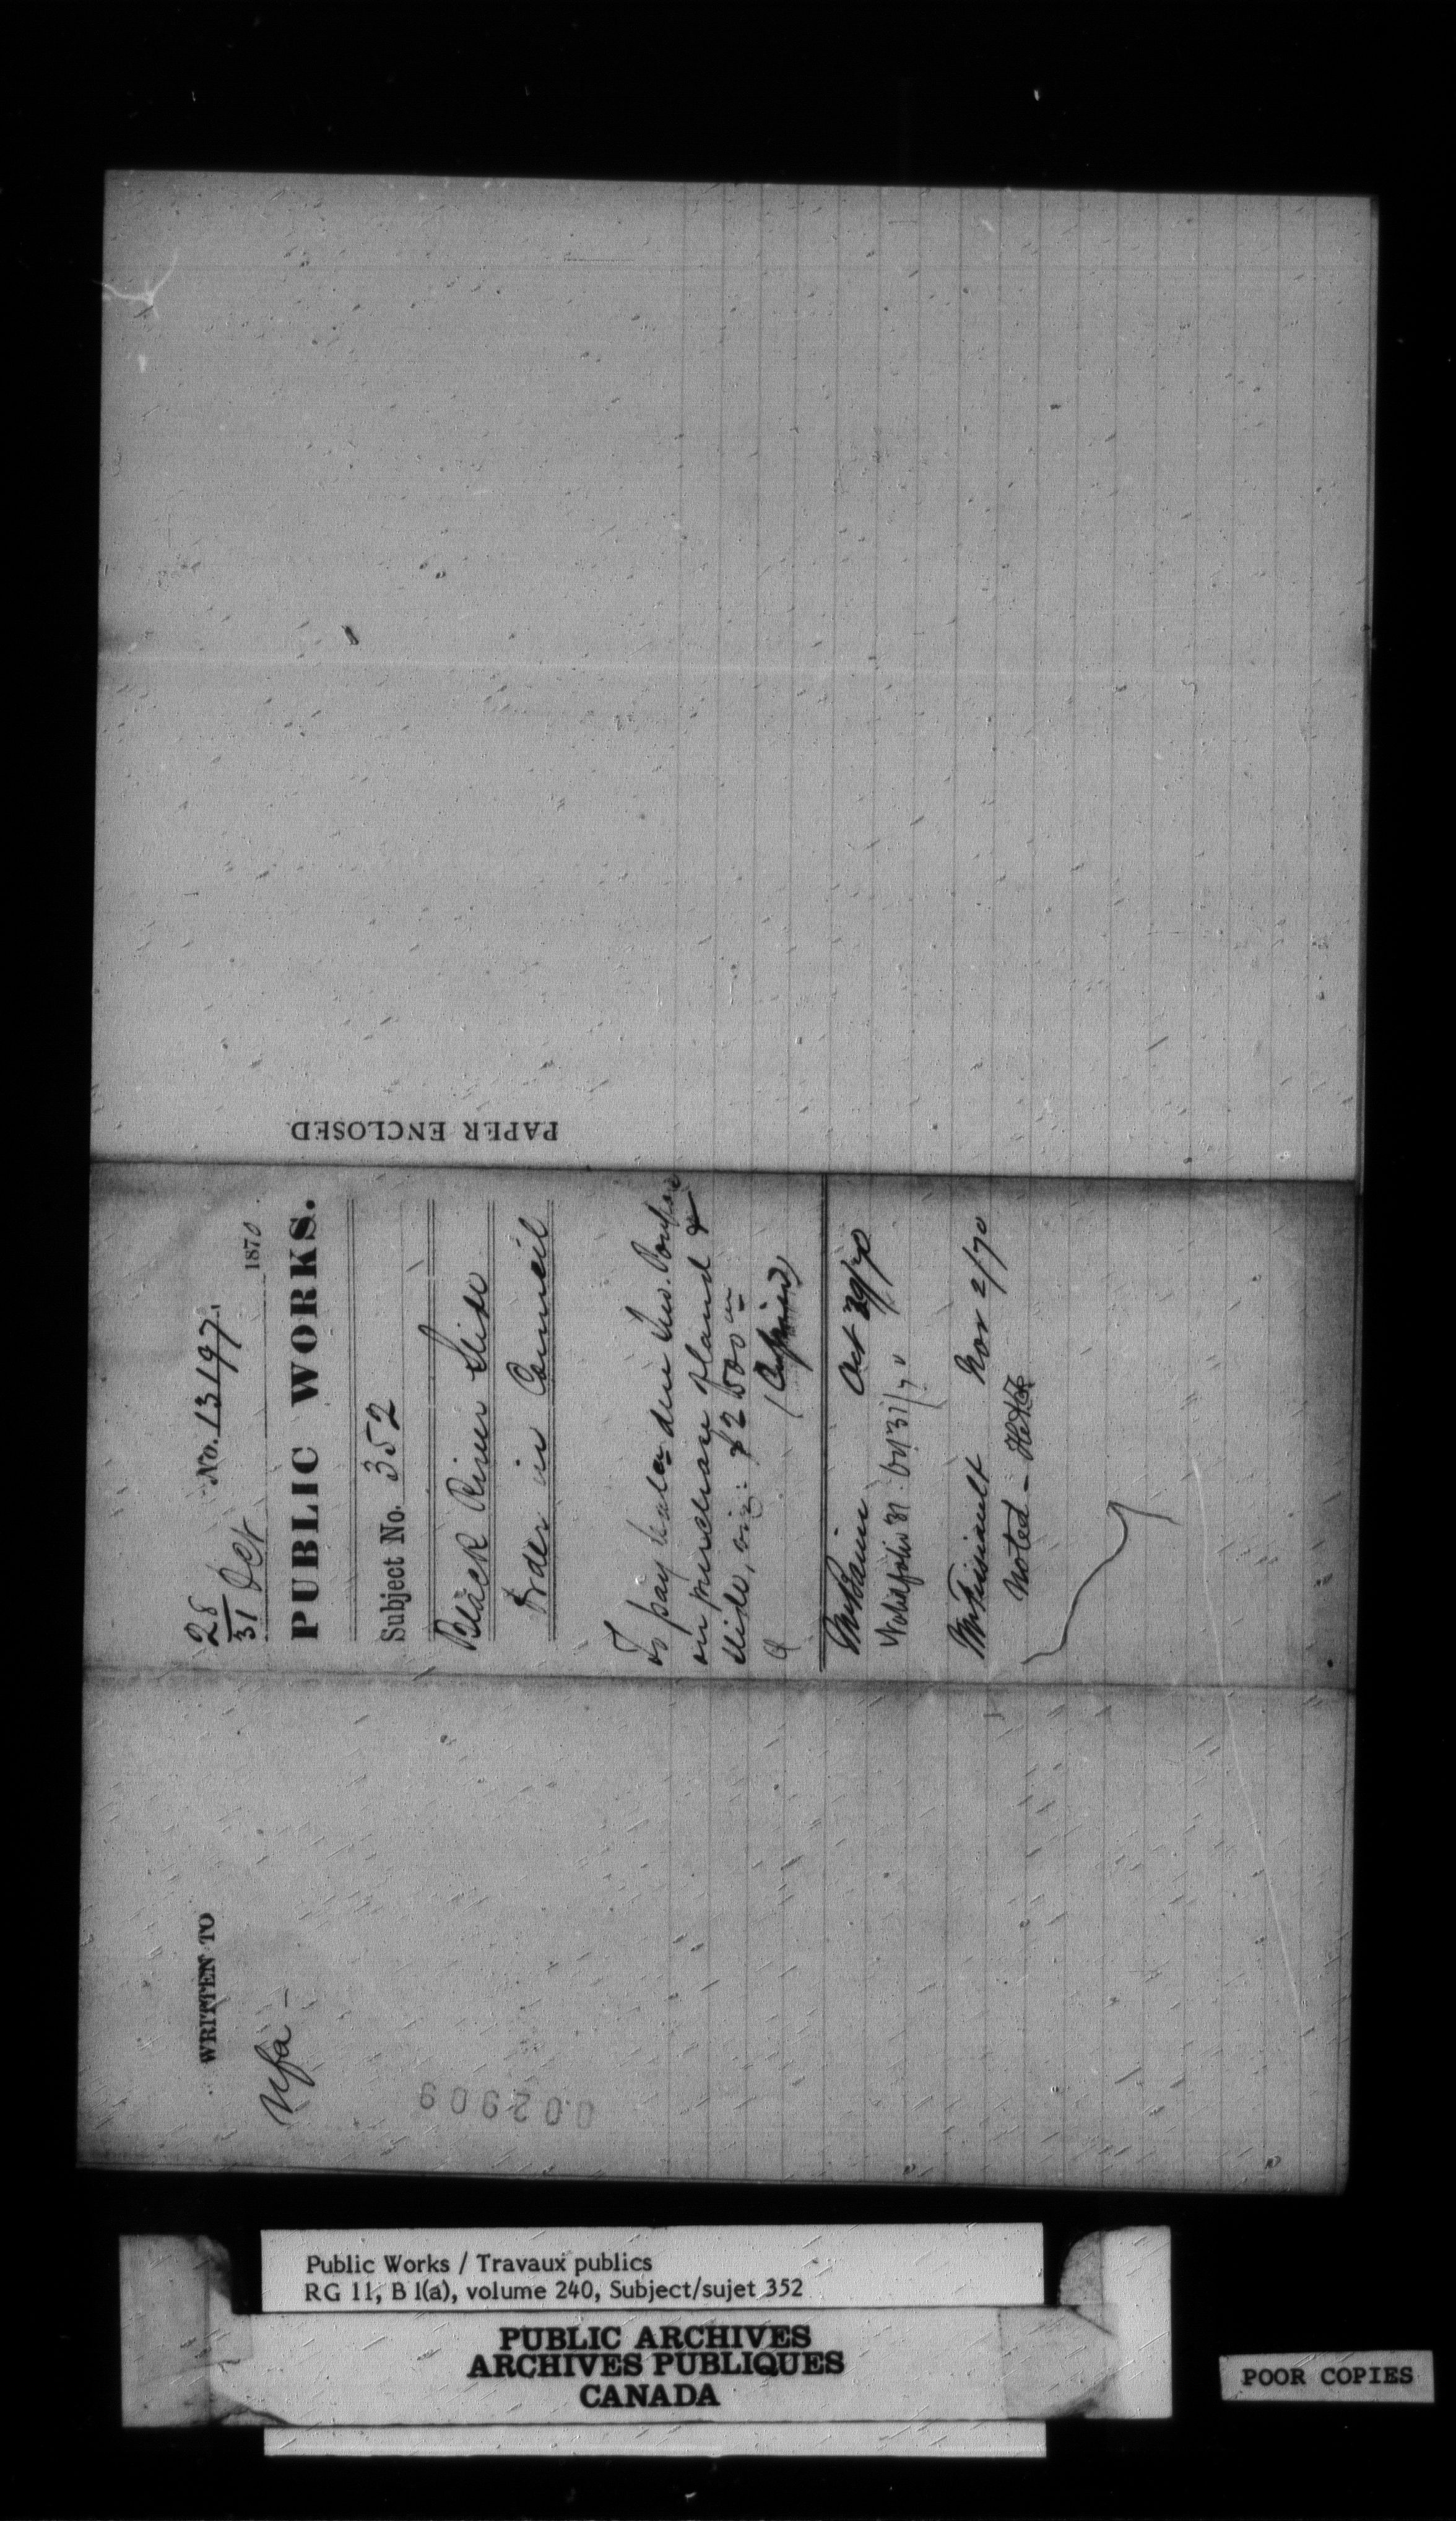 PAPER ENCLOSED
No. 13197
28
31 Oct 1870
PUBLIC WORKS.
Subject No. 352
Black River Slide
Order in Council
To pay balce due Thos.
on purchase of land &
slide, viz: $2500
Mr Baine Oct 29/70
Oct 31/70
Nov 2/70
Noted
WRITTEN TO
002909
Public Works / Travaux publics
RG 11, B 1(a), volume 240, Subject/sujet 352
PUBLIC ARCHIVES
ARCHIVES PUBLIQUES
CANADA
POOR COPIES